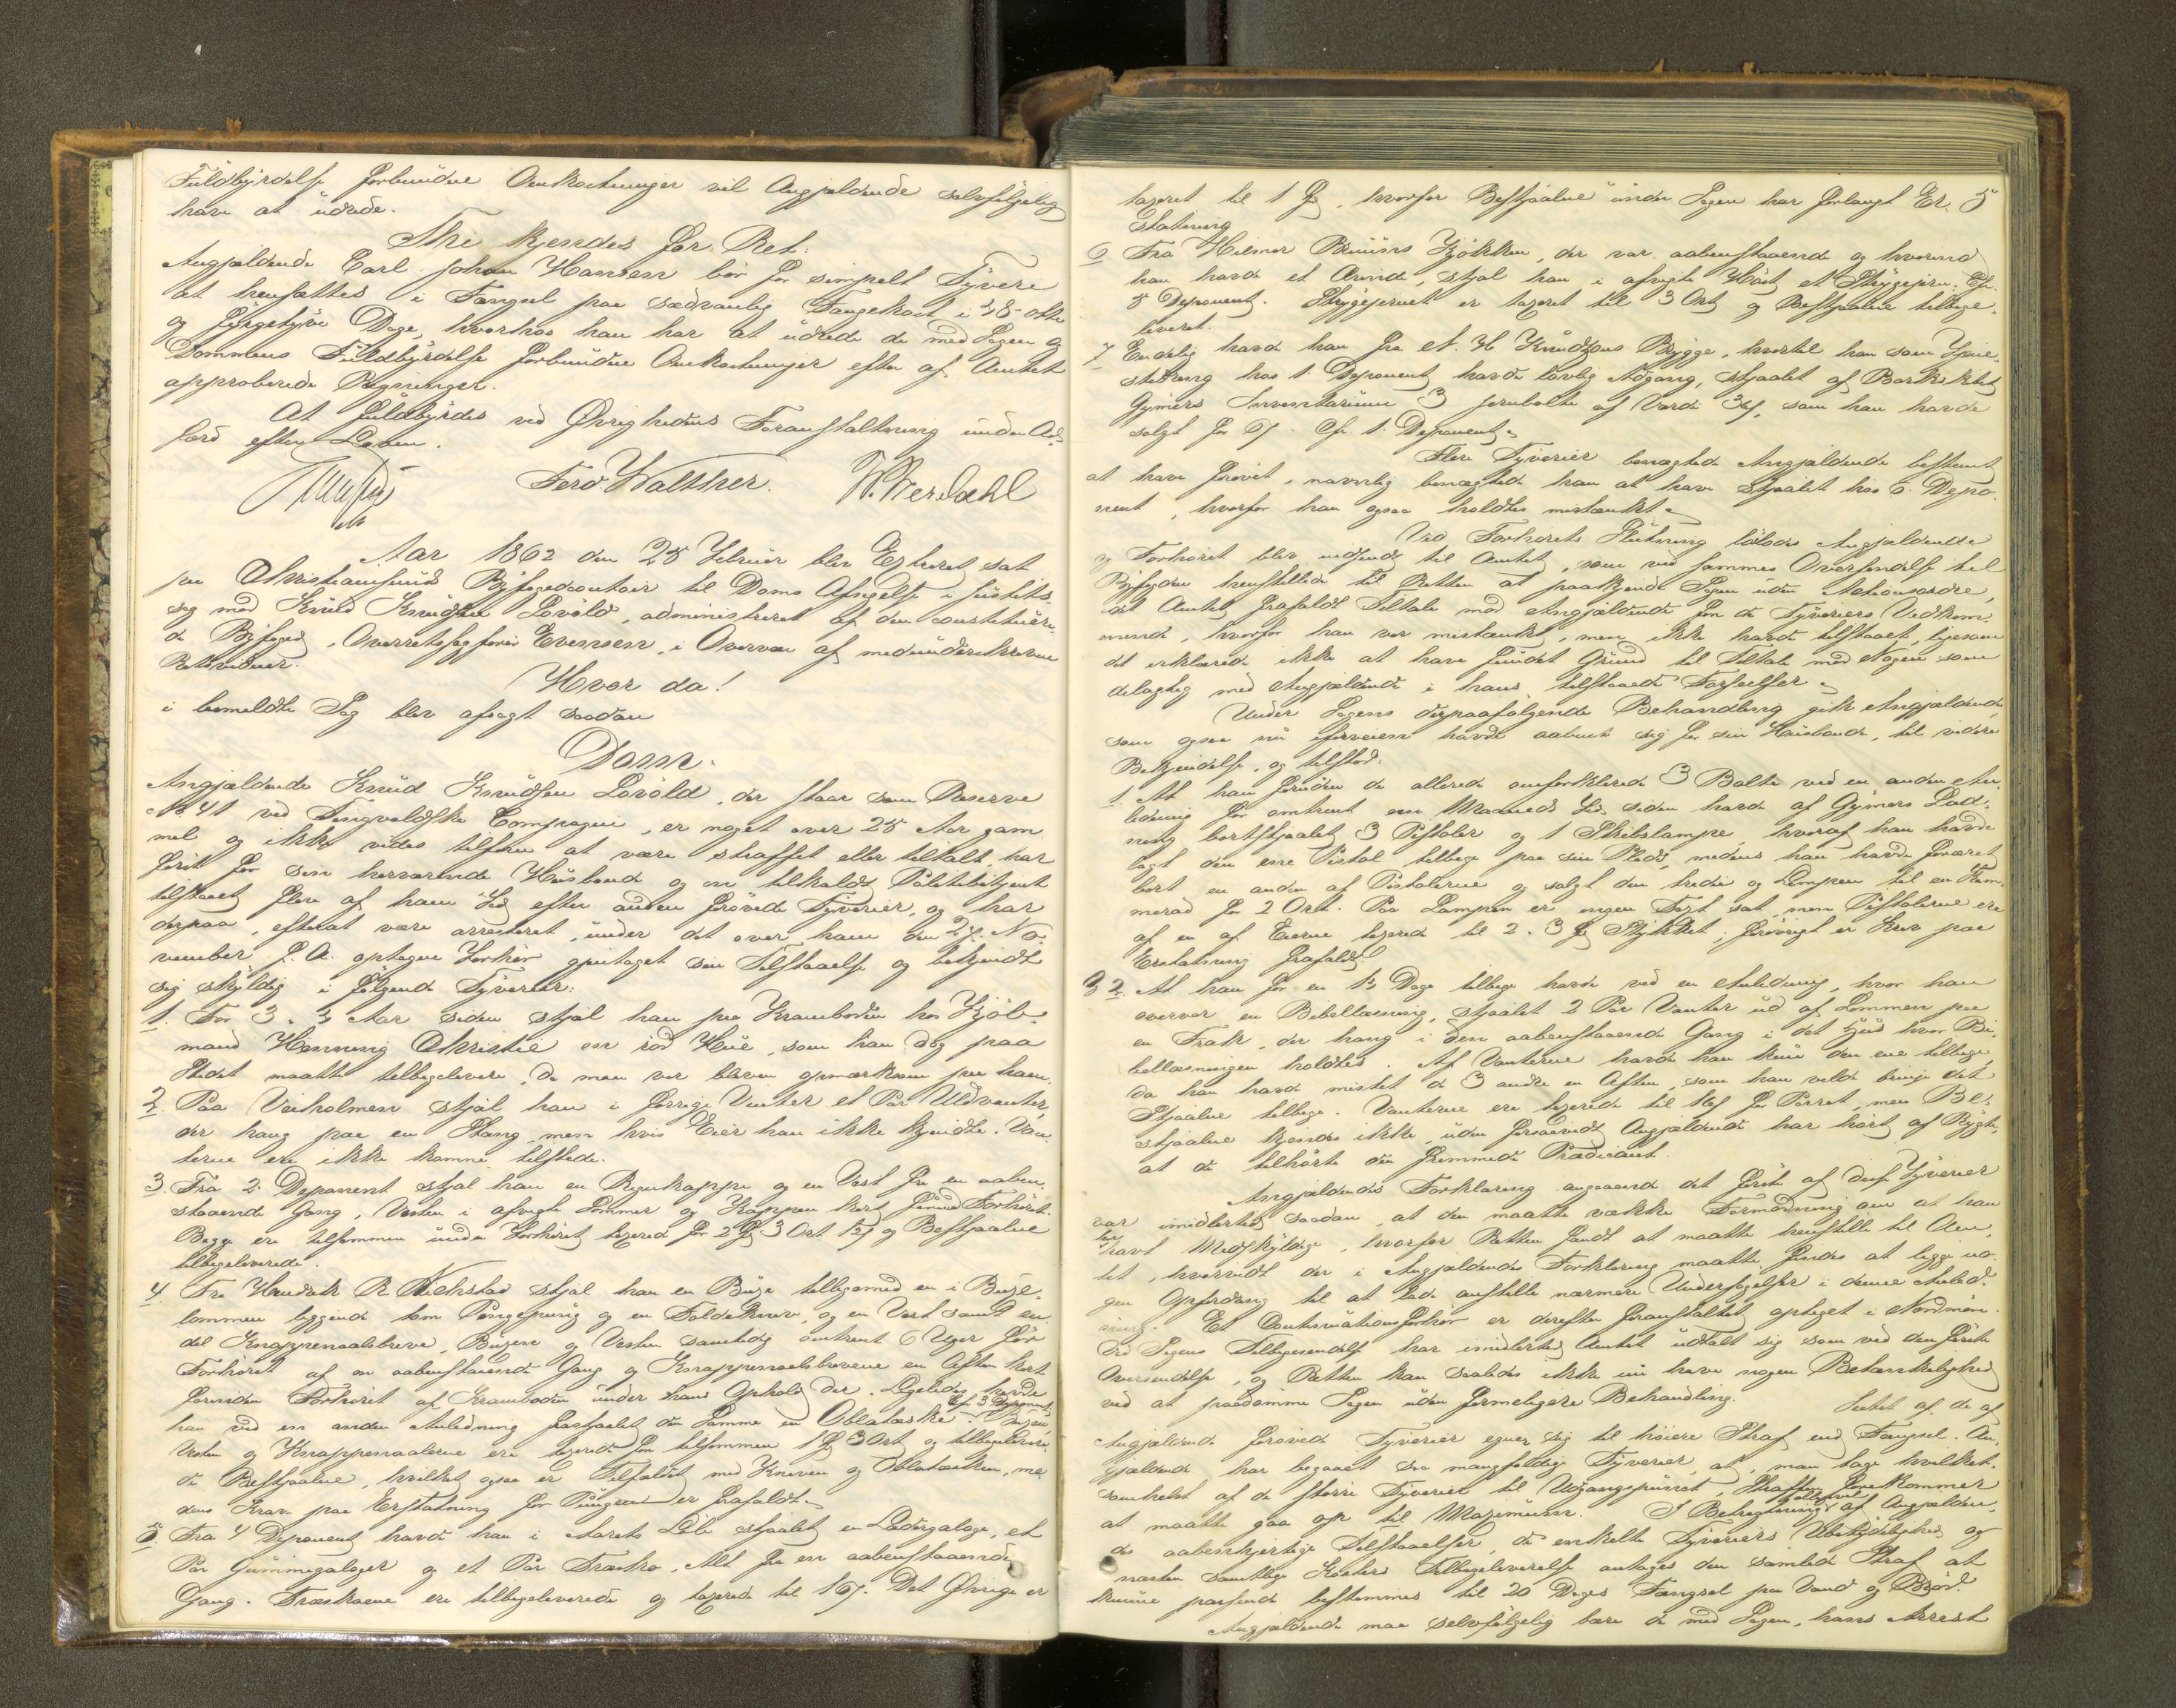 Fuldbyrdelse forbundne Omkostninger vil Angjældende selvfølgelig
have at udrede.
Thi kjendes for Ret:
Angjældende Carl Johan Hansen bør for simpelt Tyveri
at hensættes i Fængsel paa sædvanlig Fangekost i 48 otte
og fyrgetyve Dage, hvorhos han har at udrede de med Sagen og
Dommens Fuldbyrdelse forbundne Omkostninger efter af Amtet
approberede Regninger.
At fuldbyrdes ved Øvrighedens Foranstaltning under Ad-
færd efter Loven.
Ferd Walther. W. Werdahl
Aar 1862 den 28 Februar blev Extraret sat
paa Christiansunds Byfogedcontoir til Doms Afsigelse i Justits-
sag mod Knud Knudsen Løvold, administreret af den constituere-
de Byfoged, Overretssagfører Evensen, i Overvær af medunderskrevne
Retsvidner.
Hvor da!
i bemeldte Sag blev afsagt saadan
Dom.
Angjældende Knud Knudsen Løvold, der staar som Reserve
No 41 ved Tingvoldske Compagni, er noget over 28 Aar gam-
mel og ikke vides tilforn at være straffet eller tiltalt, har
først for sin herværende Husbond og en tilkaldt Politibetjent
tilstaaet flere af ham Tid efter anden forøvede Tyverier, og har
derpaa, efterat være arresteret, under det over ham den 27. No-
vember f. A. optagne Forhør gjentaget sin Tilstaaelse og bekjendt
sig skyldig i følgende Tyverier:
1. For 3 a 4 Aar siden stjal han paa Kramboden hos Kjøb-
mand Henning Christie en rød Hue, som han dog paa
Stedet maatte tilbagelevere, da man var bleven opmærksom paa ham.
2. Paa Veiholmen stjal han i forrige Vinter et Par Uldvanter,
der hang paa en Stang, men hvis Eier han ikke kjendte. Van-
terne ere ikke komne tilstede.
3. Fra 2. Deponent stjal han en Regnkappe og en Vest fra en aaben-
staaende Gang, Vesten i afvigte Sommer og Kappen kort forinden Forhøret.
Begge ere tilsammen under Forhøret taxerede for 2 Spd 3 Ort 12 s og Bestjaalne
tilbageleverede.
4. Fra Hendrik R. Nekstad stjal han en Buxe tilligemed en i Buxe-
lommen liggende tom Pengepung og en Foldekniv, og en Vest samt en
del Knappenaalsbreve, Buxen og Vesten samtidig omtrent 6 Uger før
Forhøret af en aabenstaaende Gang og Knappenaalsbrevene en Aften kort
forinden Forhøret af Kramboden under hans Ophold der. Ligeledes havde
han ved en anden Anledning frastjaalet den Samme en Oblatæske. Cfr 3 Deponent. Buxen
Vesten og Knappenaalene ere taxerede for tilsammen 1 Spd 3 Ort og tilbageleve-
de Bestjaalne, hvilket ogsaa er Tilfældet med Kniven og Oblatæsken, me-
dens Krav paa Erstatning for Pungen er frafaldt.
5. Fra 4 Deponent havde han i Aarets Løb stjaalet en Lædergaloge, et
Par Gummigaloger og et Par Træsko, Alt fra en aabenstaaende
Gang. Træskoene ere tilbageleverede og taxerede til 16 s. Det Øvrige er
taxeret til 1 Spd, hvorfor Bestjaalne under Sagen har forlangt Er-
statning
6 Fra Hilmer Bruuns Kjøkken, der var aabenstaaende og hvorind
han havde et Ærinde, stjal han i afvigte Høst et Strygejern. Cfr.
5 Deponent. Strygejernet er taxeret til 3 Ort og Bestjaalne tilbage-
leveret.
7 Endelig havde han fra N. H. Knudtzons Brygge, hvortil han som Tjene-
stedreng hos 1. Deponent havde lovlig Adgang, stjaalet af Barkskibet
Gymers Inventarium 3 Jernbolte af Værdi 36 s, som han havde
solgt for 6 s. Cfr. 1. Deponent.
Flere Tyverier benægtede Angjældende bestemt
at have forøvet, navnlig benægtede han at have stjaalet hos 6. Depo-
nent, hvorfor han ogsaa holdtes mistænkt.
Ved Forhørets Slutning løslodes Angjældende
og Forhøret blev indsendt til Amtet, som ved sammes Oversendelse til
Byfogden henstillede til Retten at paakjende Sagen uden Actionsordre,
idet Amtet frafaldt Tiltale mod Angjældende for de Tyveriers Vedkom-
mende, hvorfor han var mistænkt, men ikke havde tilstaaet, ligesom
det erklærede ikke at have fundet Grund til Tiltale mod Nogen som
delagtig med Angjældende i hans tilstaaede Forseelser.
Under Sagens derpaafølgende Behandling gik Angjældende,
som ogsaa nu iforveien havde aabnet sig for sin Huusbonde, til videre
Bekjendelse, og tilstod:
1. At han foruden de allerede omforklarede 3 Bolte ved en anden An-
ledning for omtrent en Maaneds Tid siden havde af Gymers Lad-
ning bortstjaalet 3 Pistoler og 1 Skibslampe, hvoraf han havde
lagt den ene Pistol tilbage paa sin Plads, medens han havde foræret
bort en anden af Pistolerne og solgt den tredie og Lampen til en Kam-
merad for 2 Ort. Paa Lampen er ingen Taxt sat, men Pistolerne ere
af en af Eierne taxerede til 2 a 3 Spd Stykket; forøvrigt er Krav paa
Erstatning frafaldt.
2. At han for en 14 Dage tilbage havde ved en Anledning, hvor han
overvar en Bibellæsning, stjaalet 2 Par Vanter ud af Lommen paa
en Frak, der hang i den aabenstaaende Gang i det Huus hvor Bi-
bellæsningen holdtes. Af Vanterne havde han kun den ene tilbage
da han havde mistet de 3 andre en Aften, som han vilde bringe det
Stjaalne tilbage. Vanterne ere taxerede til 16 s for Parret, men Be-
stjaalne kjendes ikke, uden forsaavidt Angjældende har hørt af Rygte,
at de tilhørte den fremmede Prædicant.
Angjældendes Forklaring angaaende det første af disse Tyverier
var imidlertid saadan, at den maatte vække Formodning om at han
havt Medskyldige, hvorfor Retten fandt at maatte henstille til Am-
tet, hvorvidt der i Angjældendes Forklaring maatte findes at ligge no-
gen Opfordring til at lade anstille nærmere Undersøgelser i denne Anled-
ning. Et Continuationsforhør er derefter foranstaltet optaget i Nordmøre.
Ved Sagens Tilbagesendelse har imidlertid Amtet udtalt sig som ved den første
Oversendelse, og Retten kan saaledes ikke nu have nogen Betænkelighed
ved at paadømme Sagen uden formeligere Behandling.
Intet af de af
Angjældende forøvede Tyverier egner sig til høiere Straf end Fængsel. An-
gjældende har begaaet saa mangfoldige Tyverier, at, man tage hvilket-
somhelst af de større Tyverier til Udgangspunct, Straffen forekommer
at maatte gaa op til Maximum. I Betragtning af Angjælden-
des aabenhjertige Tilstaaelser, de enkelte Tyveriers Ubetydelighed og
næsten samtlige Kosters Tilbageleverelse antages den samlede Straf at
kunne passende bestemmes til 20 Dages Fængsel paa Vand og Brød.
Angjældende maa selvfølgelig bære de med Sagen, hans Arrest